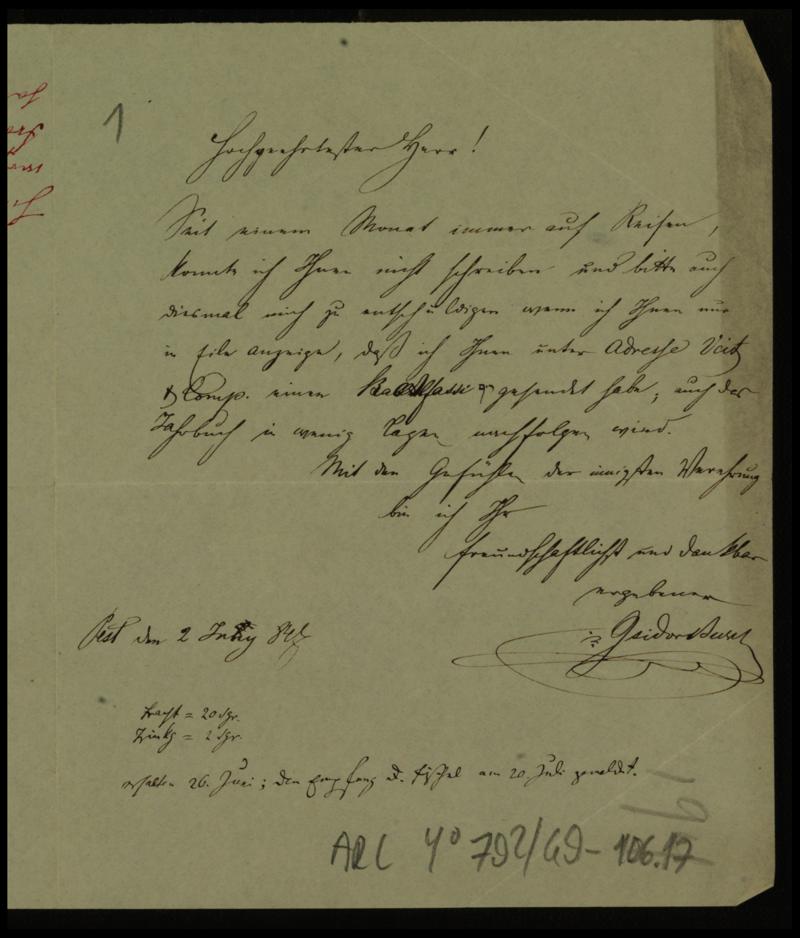 1
Hochgeehrtester Herr!
Seit einem Monat immer auf Reisen,
konnte ich Ihnen nicht schreiben und bitte auch
diesmal mich zu entschuldigen wenn ich Ihnen nur
in Eile anzeige, daß ich Ihnen unter Adresse Veit
& Comp. einen gesendet habe, auch das
Jahrbuch in wenig Tagen nachfolgen wird.
Mit den Gefühlen der innigsten Verehrung
bin ich Ihr
freundschaftlichst und dankbar
ergebener
Isidor Busch
Pest den 2
Fracht = 20 Sgr.
= 2 Sgr.
erhalten 26. Juni; den Empfang d. am 20 Juli gemeldet.
ARC 4° 792/G9-106.17